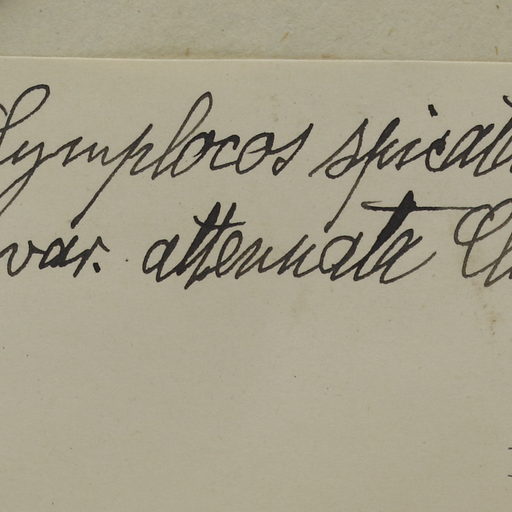 Symplocos spicat
var. attenuata Cl